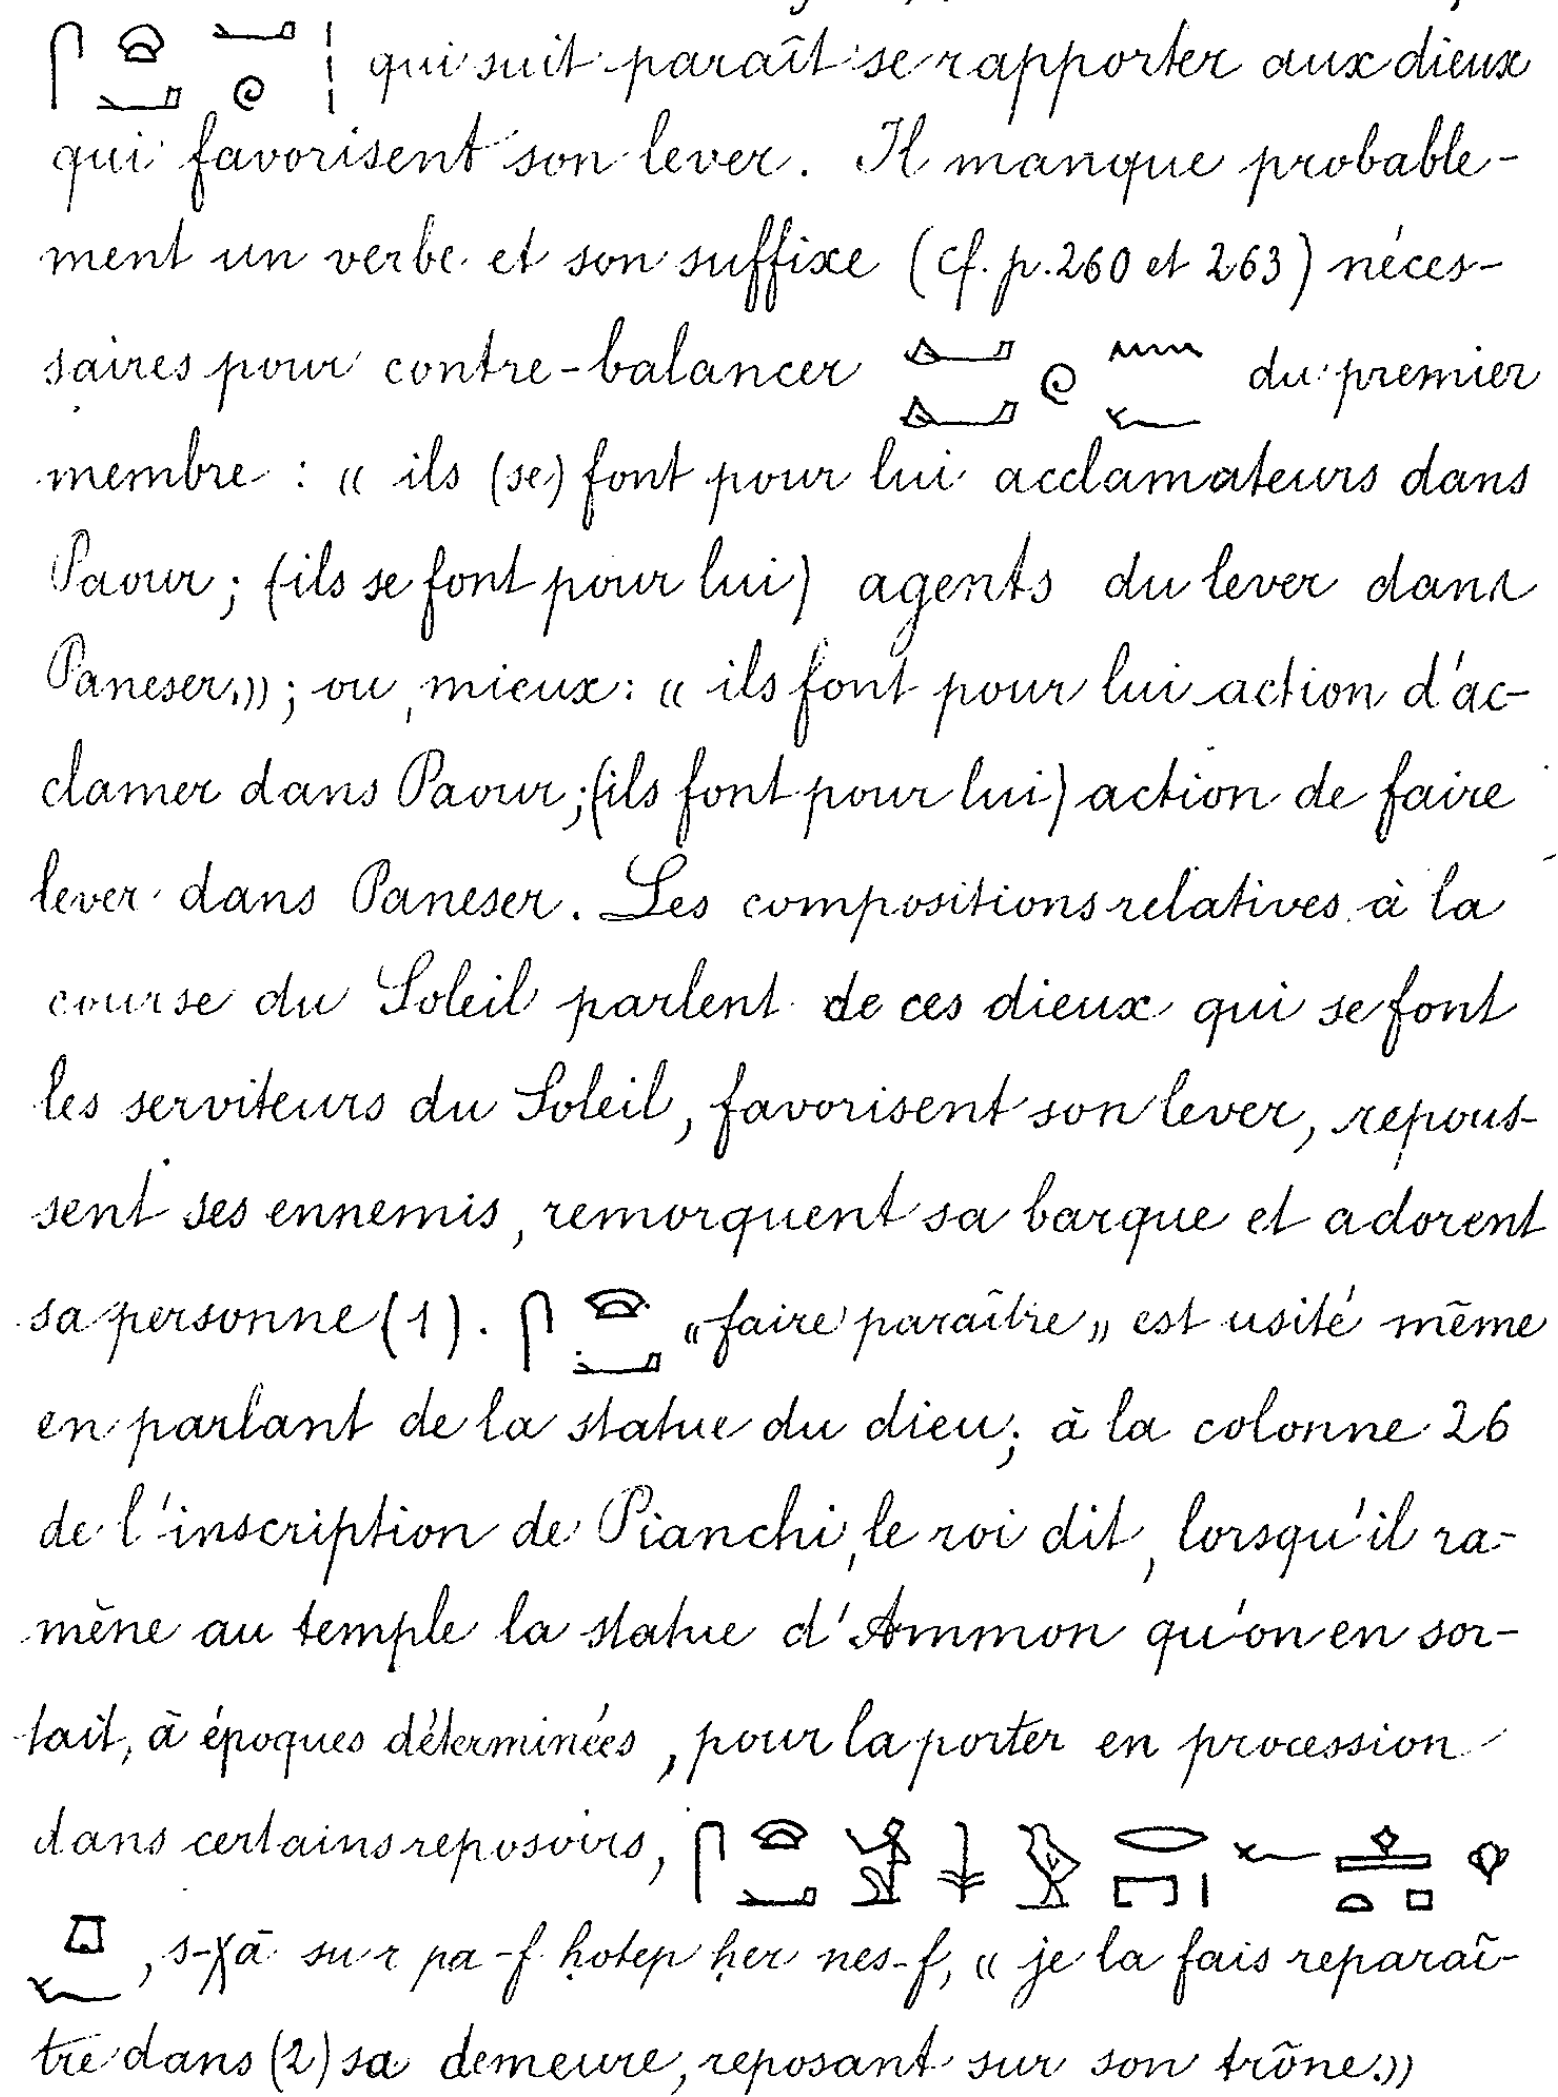 𓋴𓈍𓂝𓂝𓏲𓏥 qui suit paraît se rapporter aux dieux
qui favorisent son lever. Il manque probable-
ment un verbe et son suffixe (cf. p. 260 et 263) néces-
saires pour contre-balancer 𓂞𓂞𓏲𓈖𓆑 du premier
membre : « ils (se) font pour lui acclamateurs dans
Paour ; (ils se font pour lui) agents du lever dans
Paneser, » ; ou, mieux : « ils font pour lui action d'ac-
clamer dans Paour ; (ils font pour lui) action de faire
lever dans Paneser. Les compositions relatives à la
course du Soleil parlent de ces dieux qui se font
les serviteurs du Soleil, favorisent son lever, repous-
sent ses ennemis, remorquent sa barque et adorent
sa personne (1). 𓋴𓈍𓂝 « faire paraître » est usité même
en parlant de la statue du dieu ; à la colonne 26
de l'inscription de Pianchi, le roi dit, lorsqu'il ra-
mène au temple la statue d'Ammon qu'on en sor-
tait, à époques déterminées, pour la porter en procession
dans certains reposoirs, 𓋴𓈍𓂝𓀀𓇓𓅱𓂋𓉐𓏤𓆑𓊵𓏏𓊪𓁷
𓎼𓆑, s-χā su r pa-f ḥotep ḥer nes-f, « je la fais reparaî-
tre dans (2) sa demeure, reposant sur son trône. »